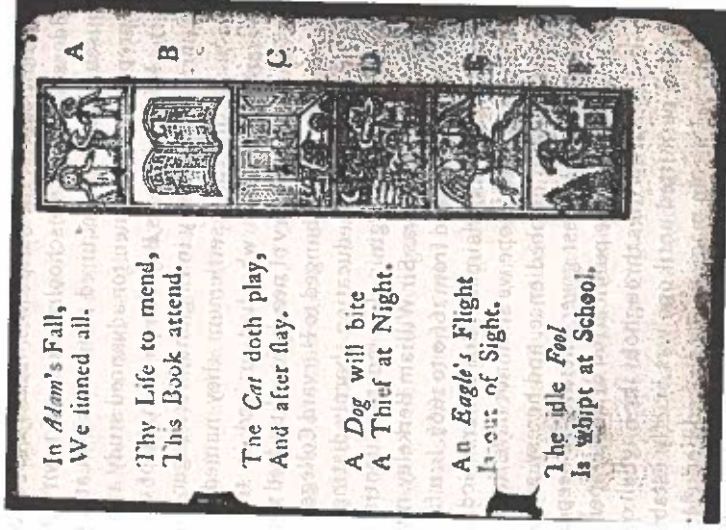 A
In Adam's Fall,
We ſinned all.
B
Thy Life to mend,
This Book attend.
C
The Cat doth play,
And after ſlay.
D
A Dog will bite
A Thief at Night.
E
An Eagle's Flight
Is out of Sight.
F
The idle Fool
Is whipt at School.